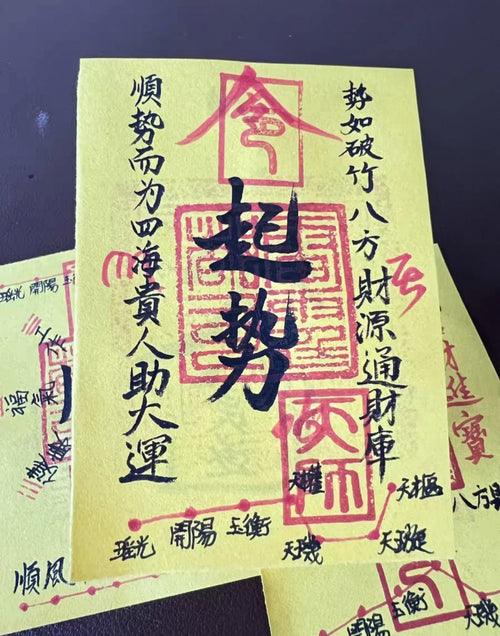 势如破竹八方財源通財庫
令
起势
順势而为四海貴人助大運
天師
瑶光
開陽
玉衡
天權
天璣
天璇
天樞
瑶光
開陽
玉
福氣
順風
進寶
八方
開陽
玉衡
天璣